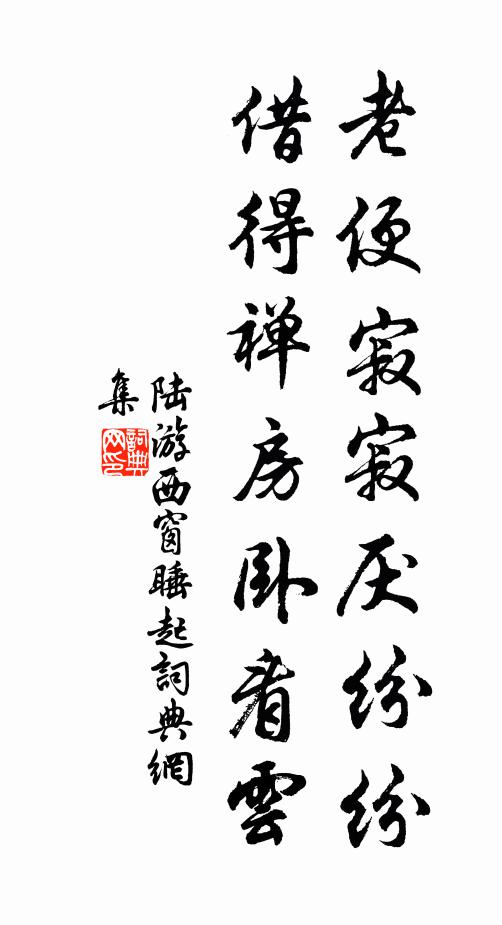 老便寂寂厌纷纷
借得禅房卧看雲
陆游西窗睡起詞典網
集
詞典
网印